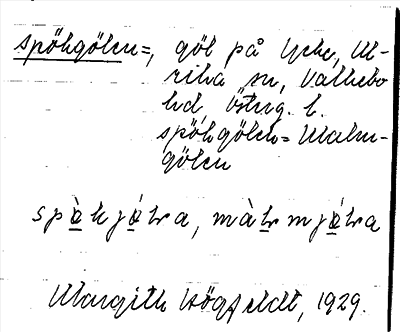 spökgölen=, göl på Lycke, Ul-
rika sn, Valkebo
hd, Österg. l.
spökgölen= Malm-
gölen
spὰkjɷ́lra, màlmjɷ́lra
Margith Högfeldt, 1929.